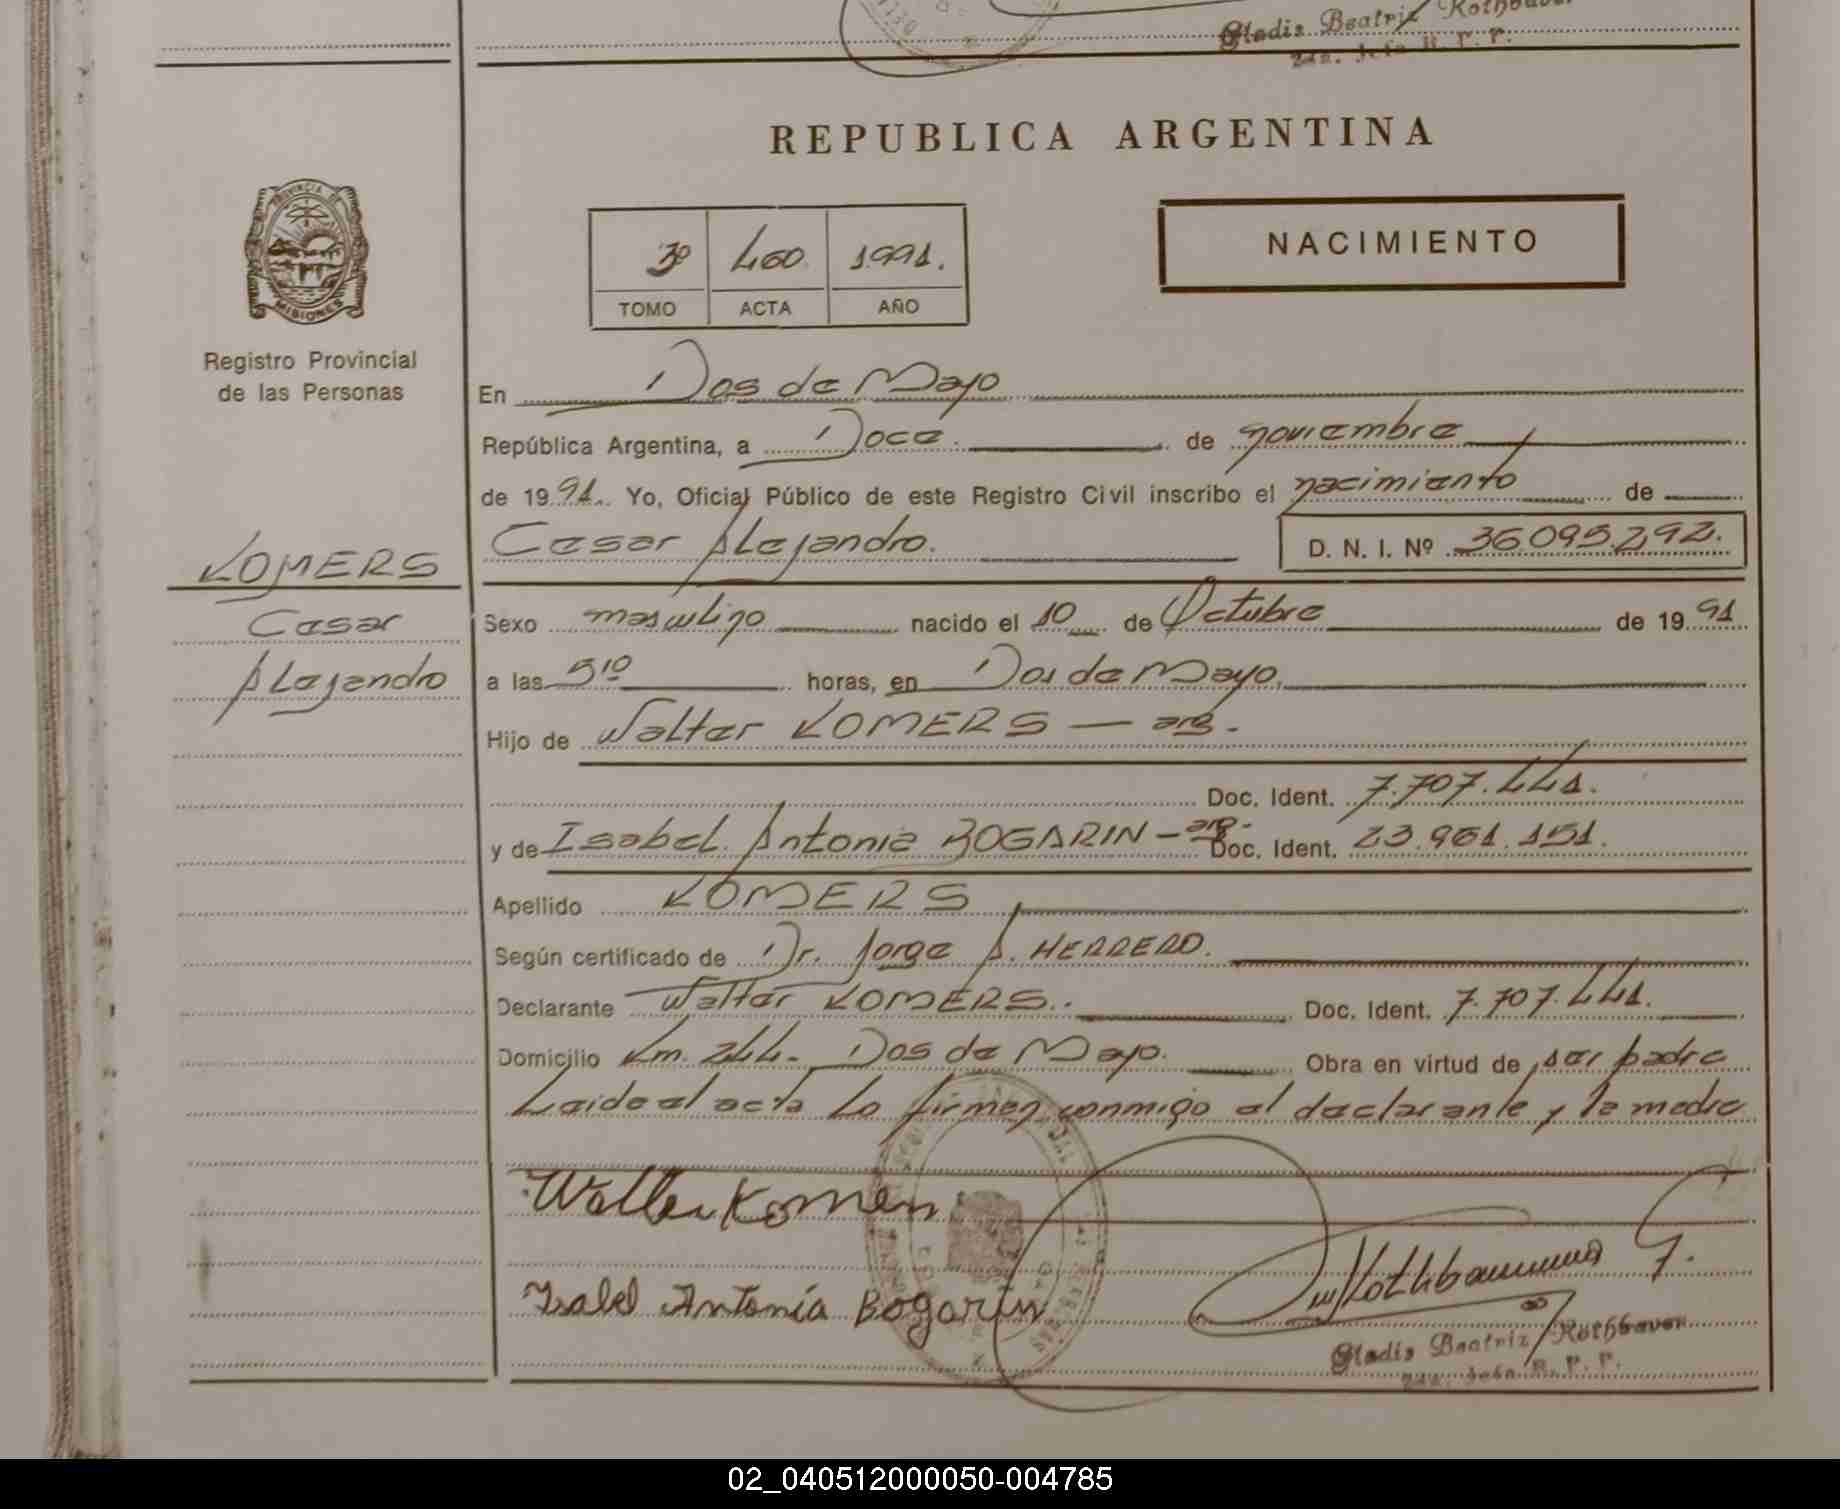 Gladis Beatriz Rothbauer
2da. Jefa R. P. P.
REPUBLICA ARGENTINA
PROVINCIA DE
MISIONES
3º 460 1991.
TOMO ACTA AÑO
NACIMIENTO
Registro Provincial
de las Personas
En Dos de Mayo
República Argentina, a Doce. de noviembre
de 1991. Yo, Oficial Público de este Registro Civil inscribo el nacimiento de
Cesar Alejandro. D. N. I. Nº 36.095.292.
KOMERS
Cesar
Alejandro
Sexo masculino nacido el 10 de Octubre de 1991
a las 5¹⁰ horas, en Dos de Mayo.
Hijo de Walter KOMERS — arg.
Doc. Ident. 7.707.441.
y de Isabel Antonia BOGARIN - arg. Doc. Ident. 23.961.151.
Apellido KOMERS
Según certificado de Dr. Jorge A. HERRERO.
Declarante Walter KOMERS. Doc. Ident. 7.707.441.
Domicilio Km. 244. Dos de Mayo. Obra en virtud de ser padre
Leida el acta lo firman conmigo el declarante y la madre
Walter Komers
Isabel Antonia Bogarin
Gladis Beatriz Rothbauer
2da. Jefa R. P. P.
02_040512000050-004785